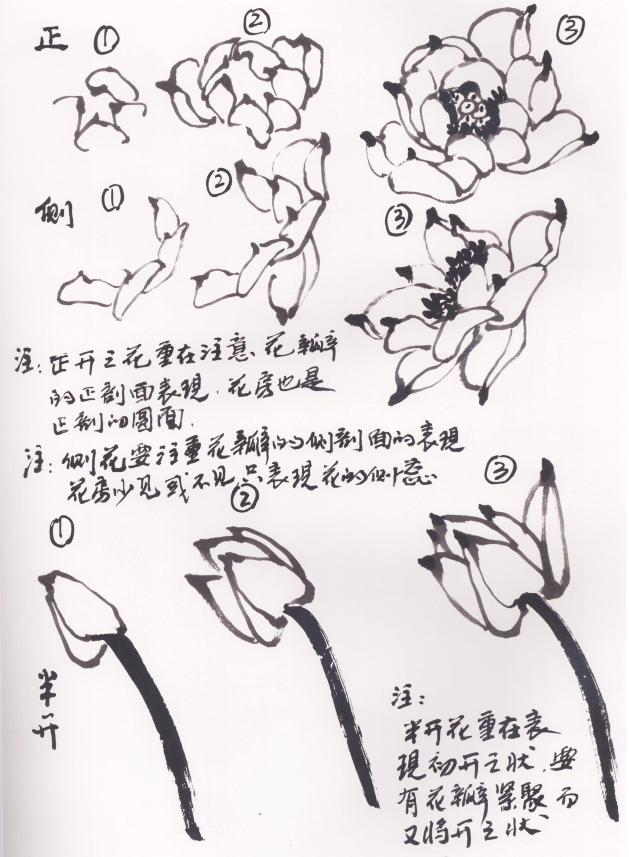 正 ① ② ③
侧 ① ② ③
注：正开之花重在注意、花瓣
的正剖面表現．花房也是
正剖的圆面．
注：侧花要注重花瓣的侧剖面的表現
花房少见或不见只表現花的侧蕊
① ② ③
半开
注：
半开花重在表
現初开之状．要
有花瓣紧聚而
又将开之状